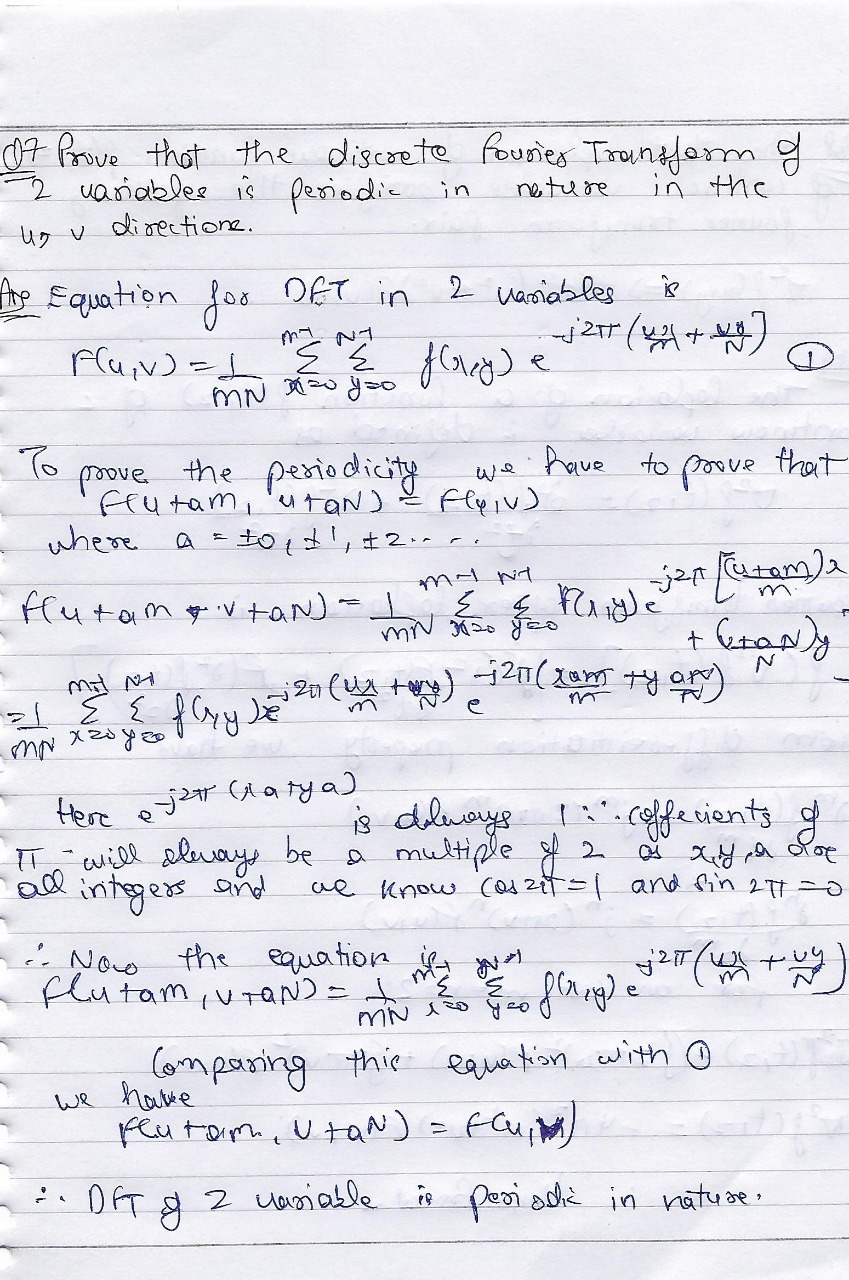 Q7 Prove that the discrete Fourier Transform of
2 variables is periodic in nature in the
u, v directions.
Ans Equation for DFT in 2 variables is
F(u,v) = 1/MN Σ(x=0 to M-1) Σ(y=0 to N-1) f(x,y) e^-j2π(ux/M + vy/N] ①
To prove the periodicity we have to prove that
F(u+aM, v+aN) = F(u,v)
where a = ±0, ±1, ±2.....
F(u+aM, v+aN) = 1/MN Σ(x=0 to M-1) Σ(y=0 to N-1) F(x,y) e^-j2π[(u+aM)x/M
+ (v+aN)y/N
= 1/MN Σ(x=0 to M-1) Σ(y=0 to N-1) f(x,y) e^-j2π(ux/M + vy/N) e^-j2π(xaM/M + y aN/N)
Here e^-j2π(xa+ya) is always 1 ∵ coffecients of
π will always be a multiple of 2 as x,y,a are
all integers and we know cos2π=1 and sin 2π=0
∴ Now the equation is
F(u+aM, v+aN) = 1/MN Σ(x=0 to M-1) Σ(y=0 to N-1) f(x,y) e^-j2π(ux/M + vy/N)
Comparing this equation with ①
we have
F(u+aM, v+aN) = F(u,v)
∴ DFT of 2 variable is periodic in nature.